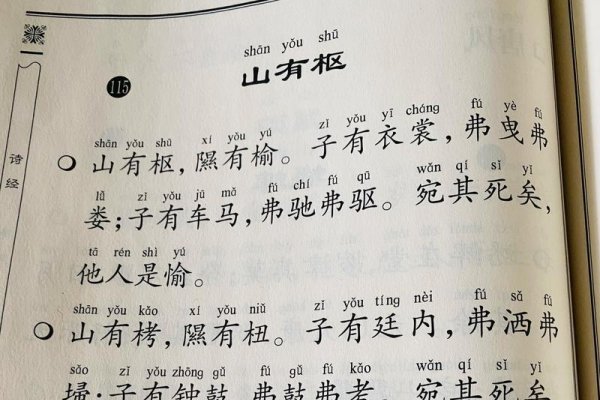 诗经
shān yǒu shū
山有枢
115
shān yǒu shū xí yǒu yú zǐ yǒu yī cháng fú yè fú
山有枢,隰有榆。子有衣裳,弗曳弗
lǚ zǐ yǒu jū mǎ fú chí fú qū wǎn qí sǐ yǐ
娄;子有车马,弗驰弗驱。宛其死矣,
tā rén shì yú
他人是愉。
shān yǒu kǎo xí yǒu niǔ zǐ yǒu tíng nèi fú sǎ fú
山有栲,隰有杻。子有廷内,弗洒弗
sǎo zǐ yǒu zhōng gǔ fú gǔ fú kǎo wǎn qí sǐ yǐ
埽;子有钟鼓,弗鼓弗考。宛其死矣